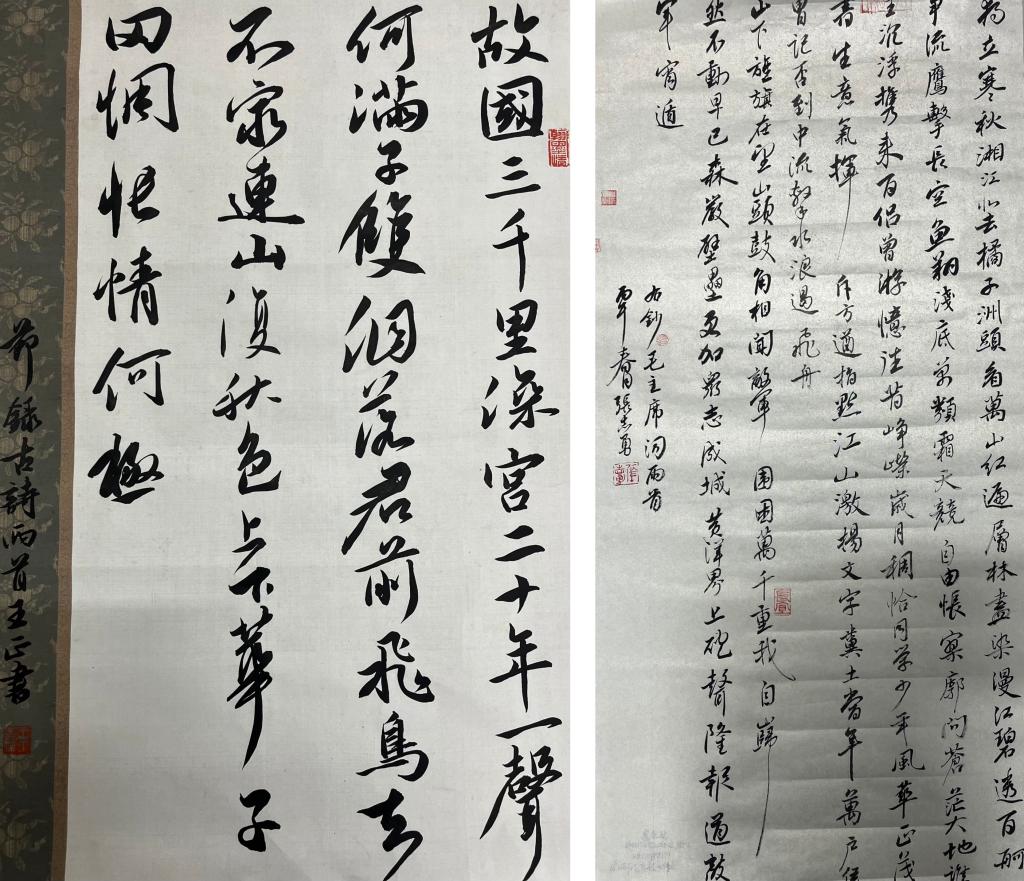 故國三千里深宮二十年一聲
何滿子雙泪落君前飛鳥去
不窮連山復秋色上下華子
岡惆悵情何極
節錄古詩兩首王正書
獨立寒秋湘江北去橘子洲頭看萬山紅遍層林盡染漫江碧透百舸
爭流鷹擊長空魚翔淺底萬類霜天競自由悵寥廓問蒼茫大地誰
主沉浮攜來百侶曾游憶往昔崢嶸歲月稠恰同學少年風華正茂
書生意氣揮斥方遒指點江山激揚文字糞土當年萬戶侯
曾記否到中流擊水浪遏飛舟
山下旌旗在望山頭鼓角相聞敵軍圍困萬千重我自巋
然不動早已森嚴壁壘更加衆志成城黃洋界上砲聲隆報道敵
軍宵遁
右鈔毛主席詞兩首
春張志勇